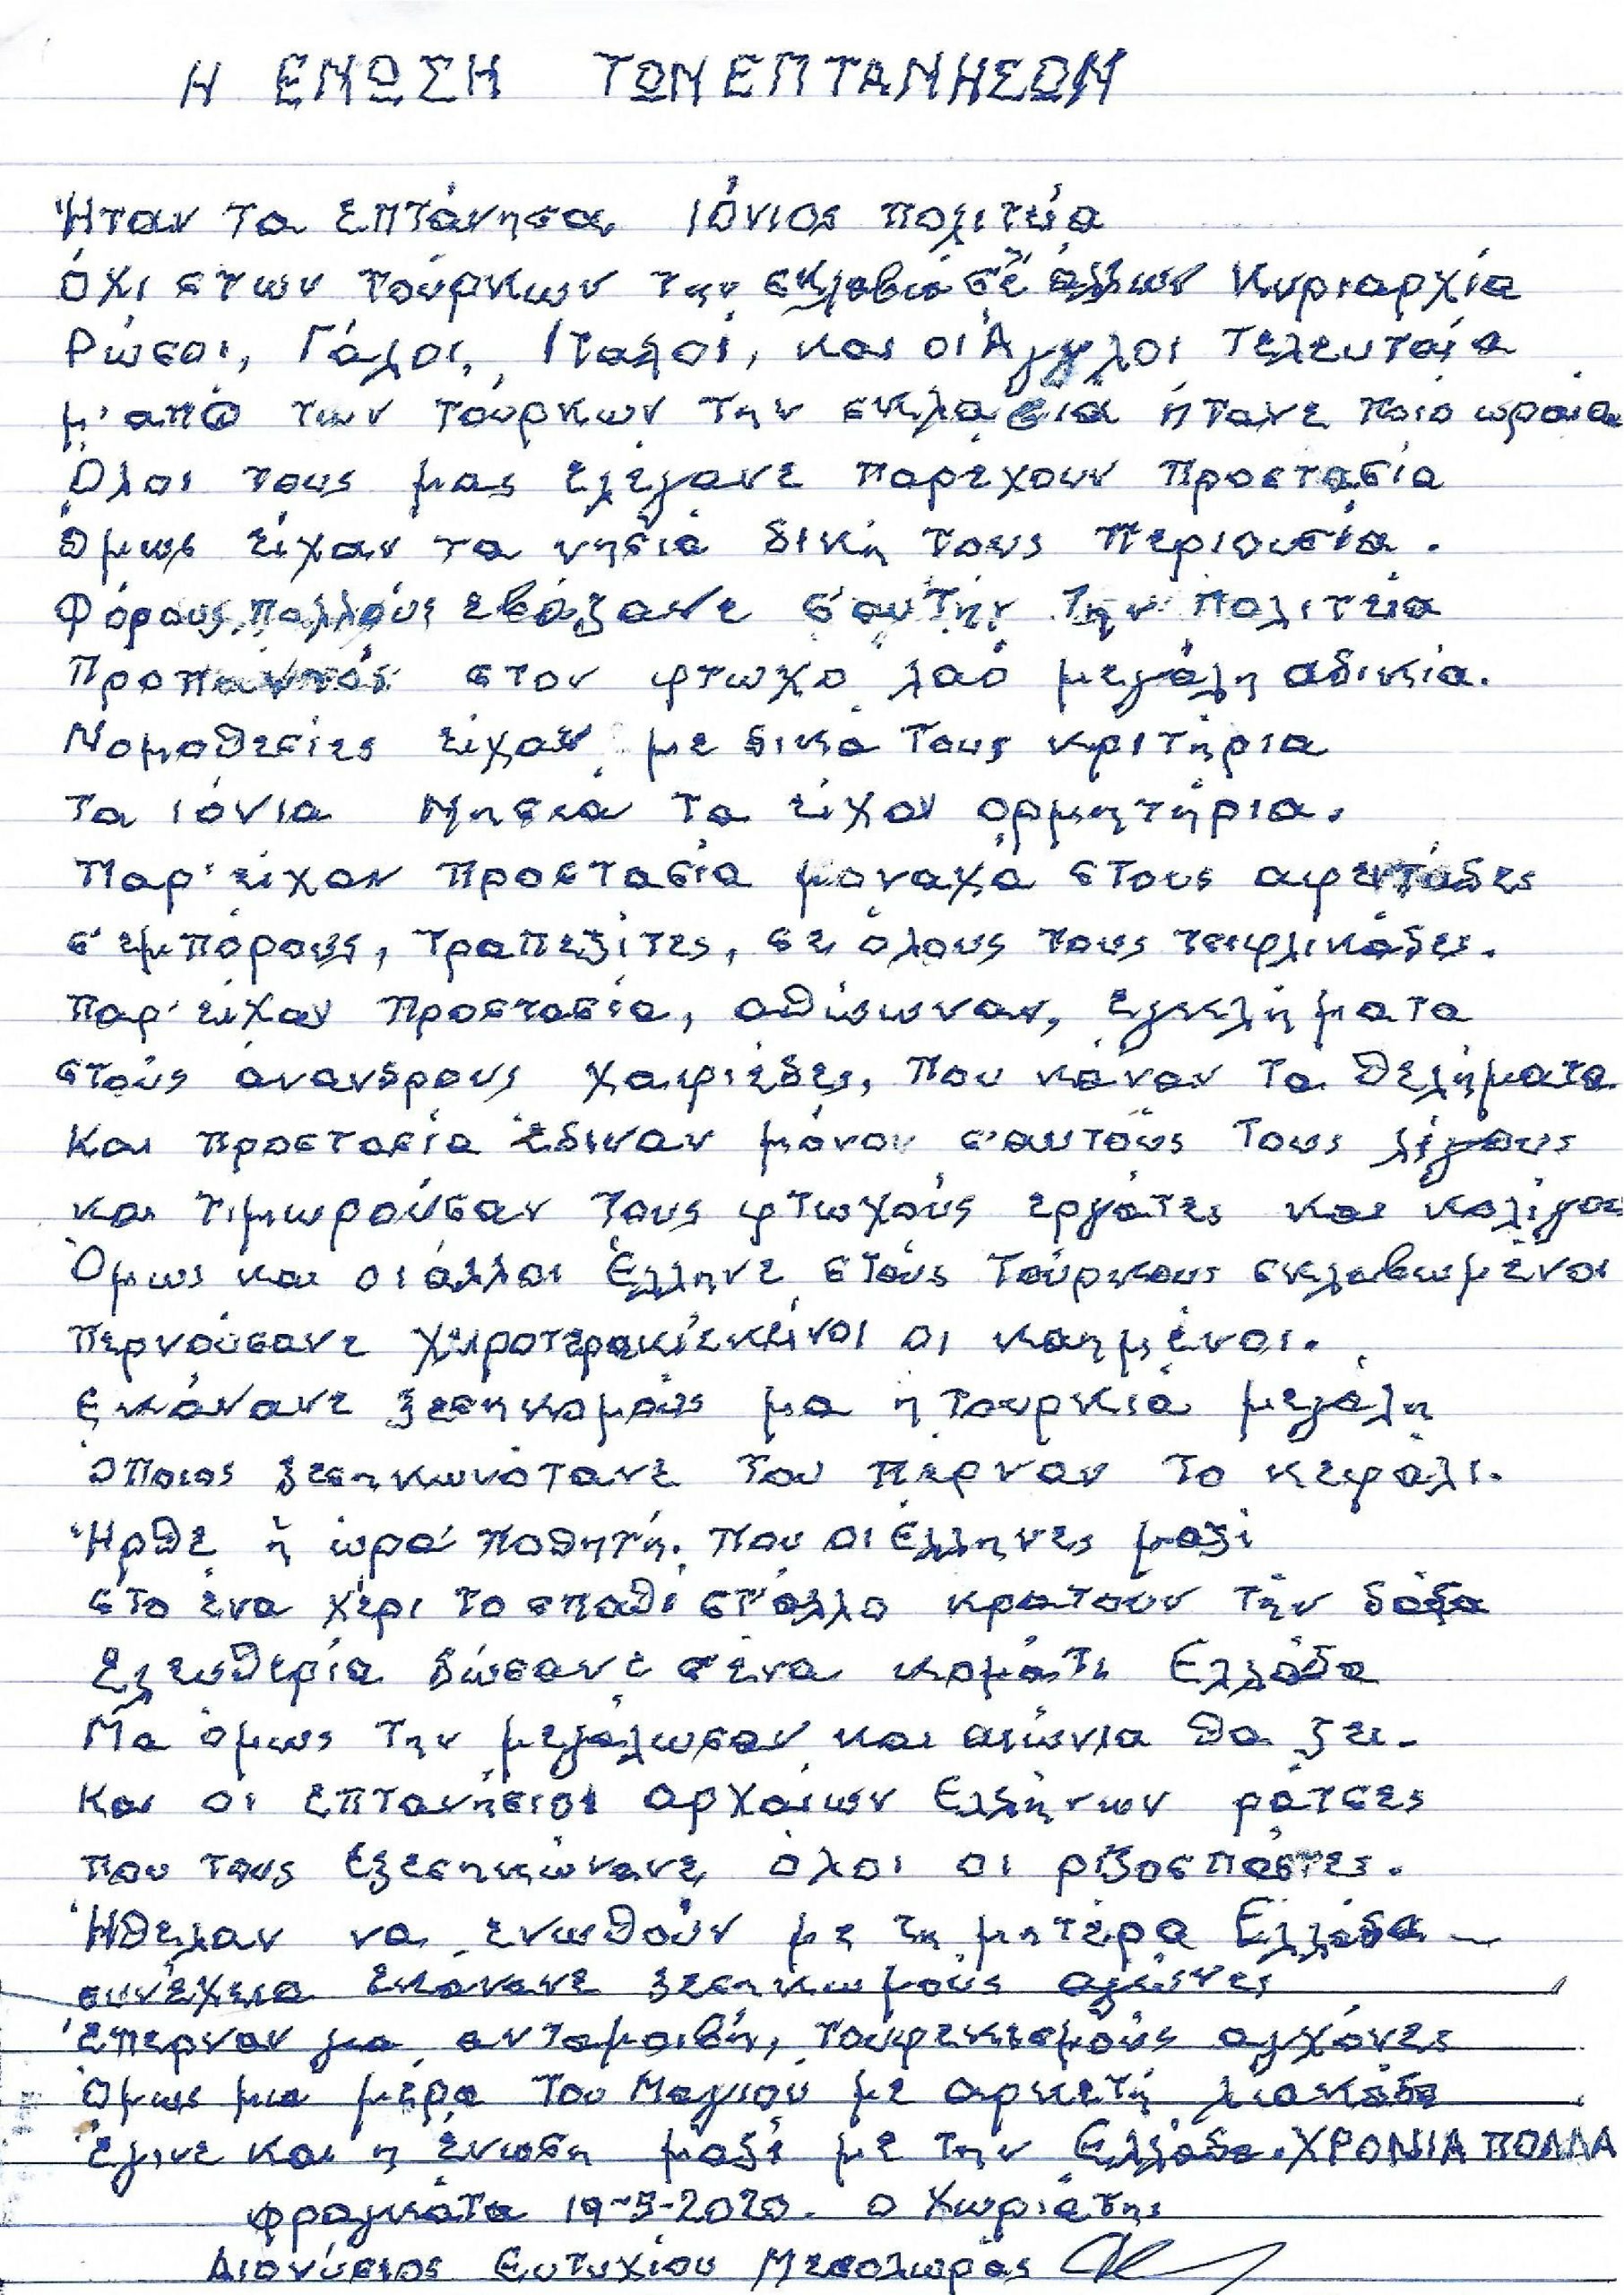 Η ΕΝΩΣΗ ΤΩΝ ΕΠΤΑΝΗΣΩΝ
Ήταν τα επτάνησα, ιόνιος πολιτεία
όχι στων τούρκων την σκλαβιά σέ άλλων κυριαρχία
Ρώσοι, Γάλοι, Ιταλοί, και οι Άγγλοι τελευταία
μ' από των τούρκων την σκλαβιά ήτανε ποιό ωραία
Όλοι τους μας ελέγανε παρέχουν προστασία
όμως είχαν τα νησιά δική τους περιουσία.
Φόρους, πολλούς εβάζανε σ'αυτήν την πολιτεία
Προπαντός στον φτωχό λαό μεγάλη αδικία.
Νομοθεσίες είχαν με δικά τους κριτήρια
τα ιόνια Νησιά τα είχαν ορμητήρια.
Παρ' είχαν προστασία μοναχά στους αφεντάδες
σ' εμπόρους, τραπεζίτες, σε όλους τους τσιφλικάδες.
Παρ' είχαν προστασία, αθώωναν, εγκλήματα
στούς άνανδρους χαφιέδες, που κάναν τα θελήματα
και προστασία έδιναν μόνον σ'αυτούς τους λίγους
και τιμωρούσαν τους φτωχούς εργάτες και κολίγους
Όμως και οι άλλοι Έλληνε στούς Τούρκους σκλαβωμένοι
περνούσανε χειρότερα κι'εκείνοι οι καημένοι.
Εκάνανε ξεσηκομούς μα η τουρκιά μεγάλη
όποιος ξεσηκωνότανε του πέρναν το κεφάλι.
Ήρθε ή ώρα ποθητή. που οι Έλληνες μαζί
στο ένα χέρι το σπαθί στ'άλλο κρατούν την δάδα
Ελευθερία δώσανε σ'ένα κομάτι Ελλάδα
Μα όμως την μεγάλωσαν και αιώνια θα ζει.
Και οι επτανήσιοι αρχαίων Ελλήνων ράτσες
που τους εξεσηκώνανε όλοι οι ριζοσπάστες.
Ήθελαν να ενωθούν με τη μητέρα Ελλάδα
συνέχεια εκάνανε ξεσηκωμούς αγώνες
Έπερναν για ανταμοιβή, τουφεκισμούς αγχόνες
Όμως μια μέρα του Μαγιού με αρκετή λιακάδα
Έγινε και η ένωση μαζί με την Ελλάδα. ΧΡΟΝΙΑ ΠΟΛΛΑ
Φραγκάτα 19-5-2020. ο χωριάτης
Διονύσιος Ευτυχίου Μεσολωράς